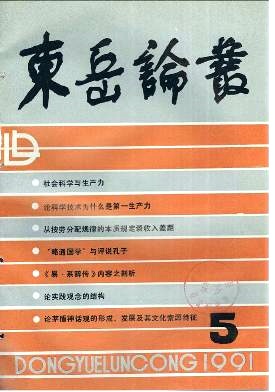 東岳論叢
社会科学与生产力
论科学技术为什么是第一生产力
从按劳分配规律的本质规定谈收入差距
“略通国学”与评说孔子
《易·系辞传》内容之剖析
论实践观念的结构
论茅盾神话观的形成、发展及其文化意识特征
5
DONGYUELUNCONG1991